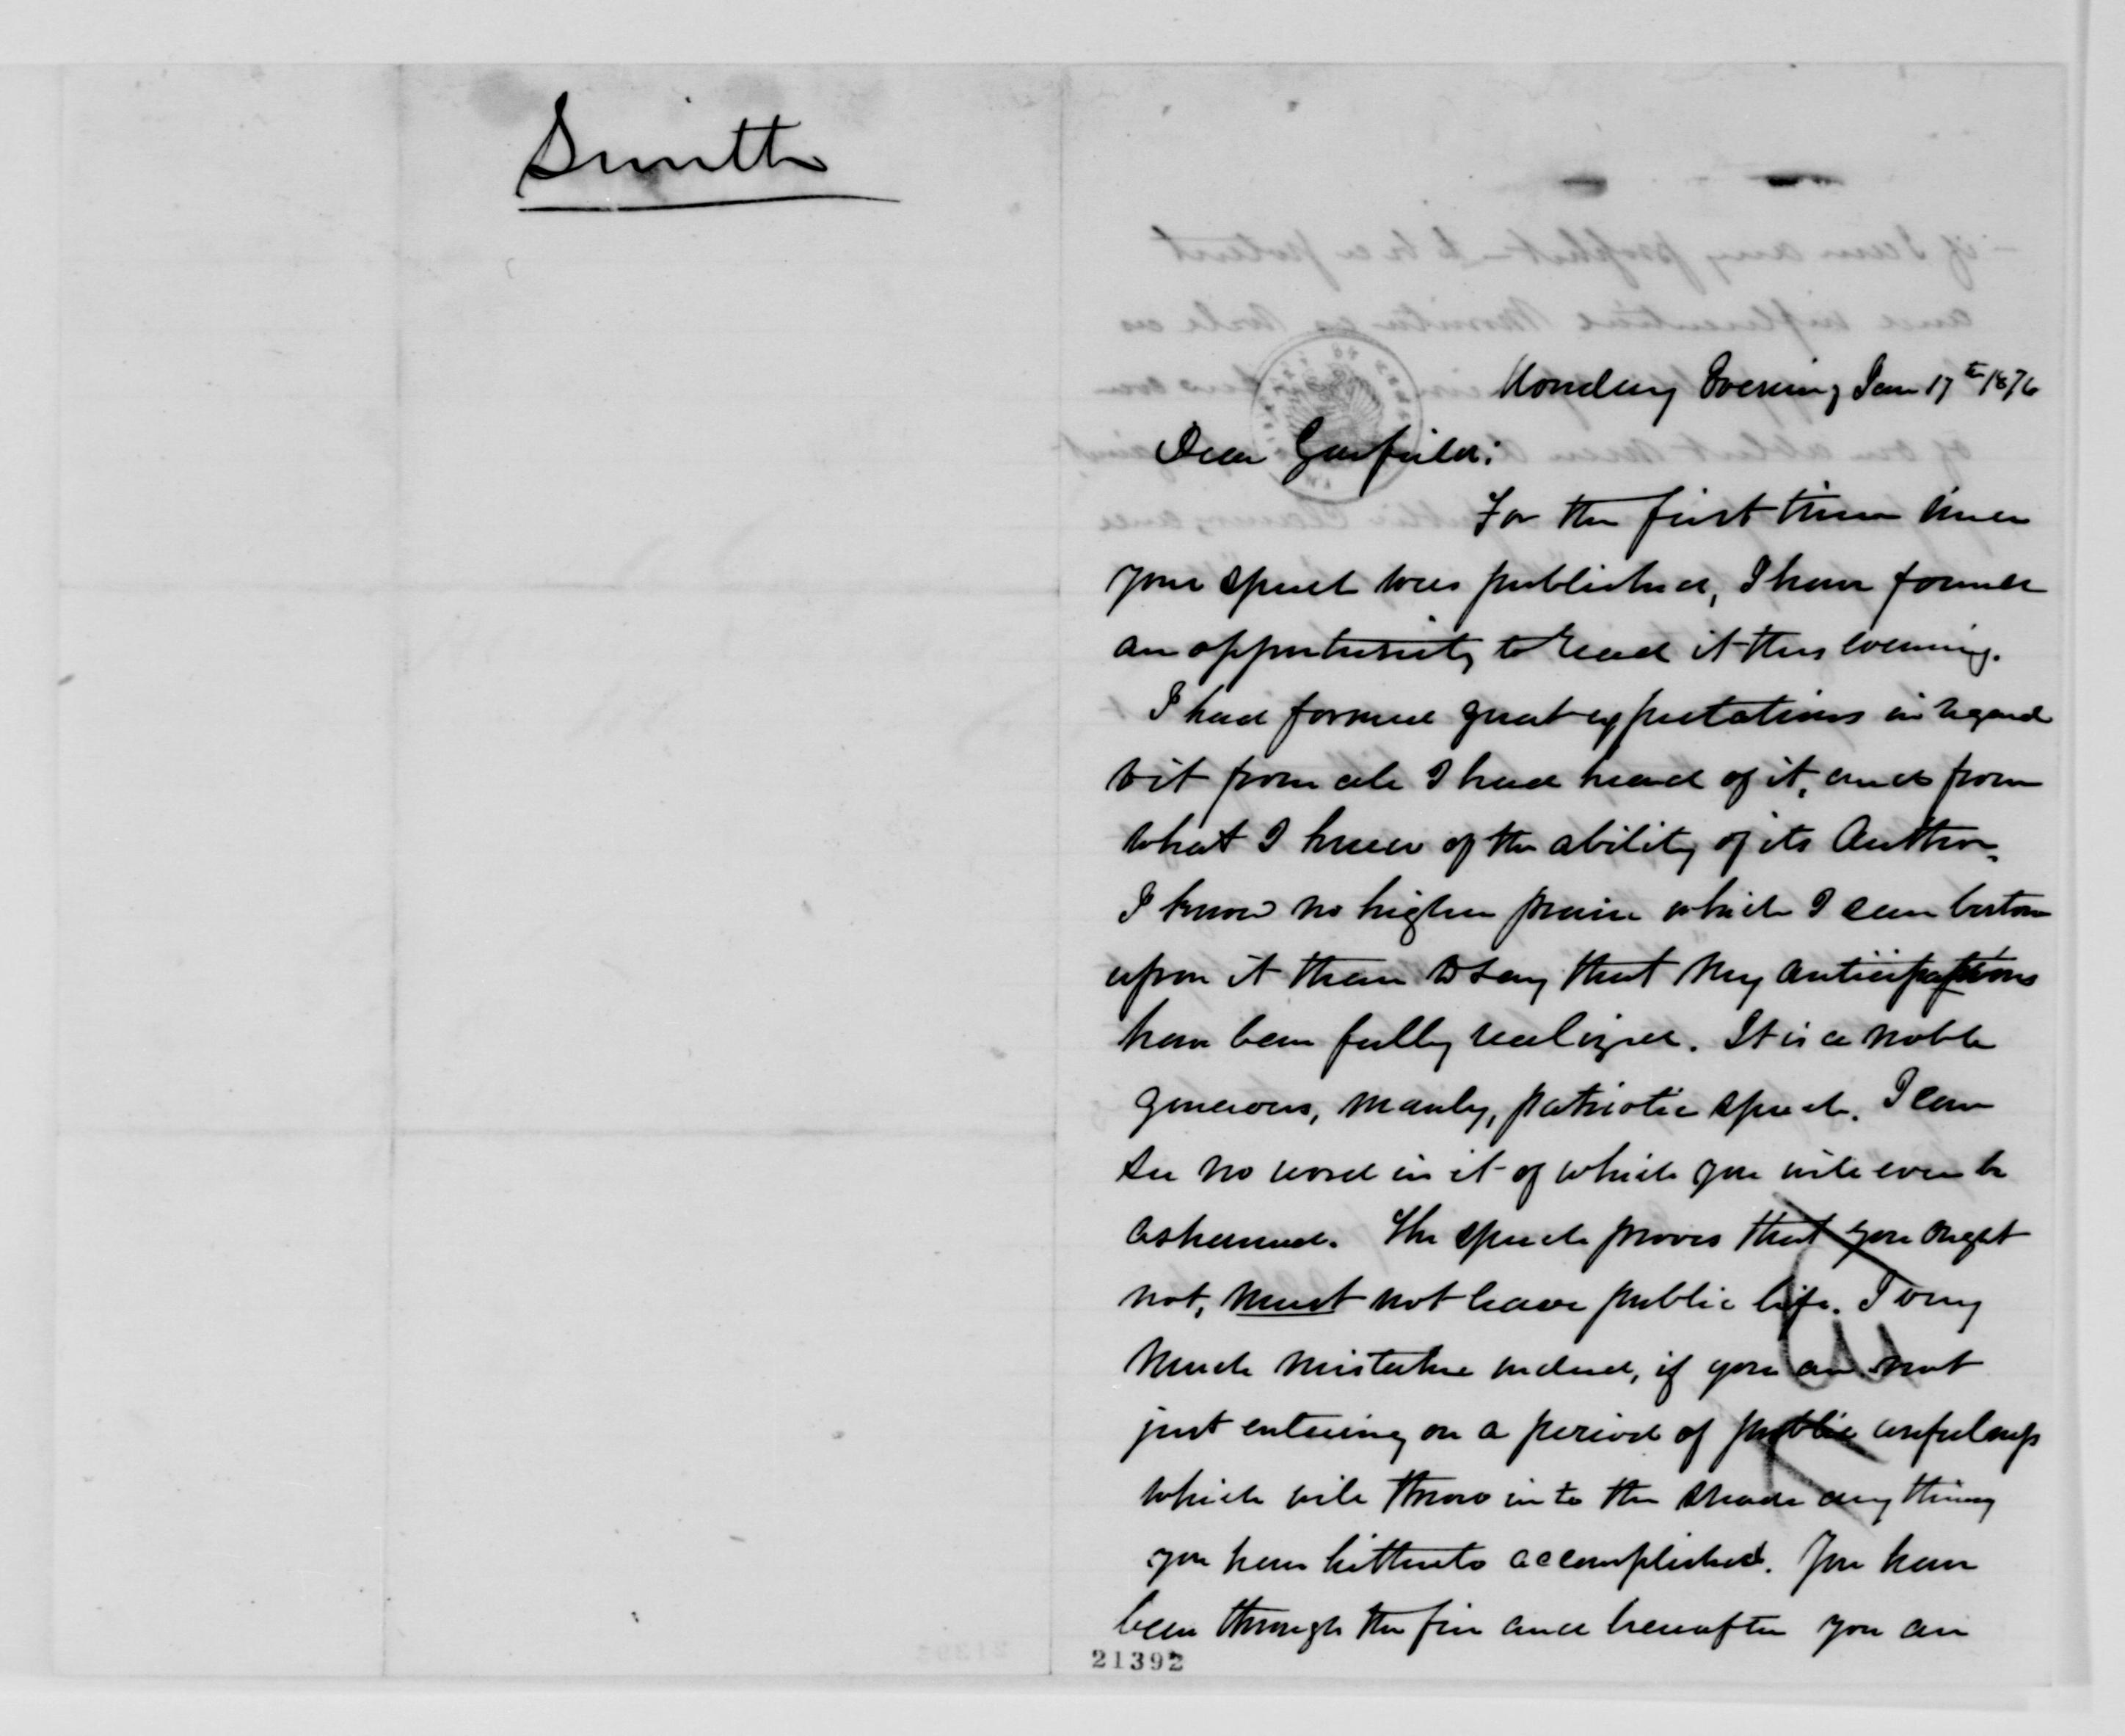 Smith
Monday Evening Jan 17th 1876
Dear Garfield:
For the first time since
your speech was published, I have found
an opportunity to read it this evening.
I had formed great expectations in regard
to it from all I had heard of it, and from
what I knew of the ability of its Author.
I know no higher praise which I can bestow
upon it than to say that my anticipations
have been fully realized. It is a noble
generous, manly, patriotic speech. I can
see no word in it of which you will ever be
ashamed. The speech proves that you ought
not, must not leave public life. I very
much mistake indeed, if you are not
just entering on a period of public usefulness
which will throw into the shade any thing
you have hitherto accomplished. You have
been through the fire and hereafter you are
21392